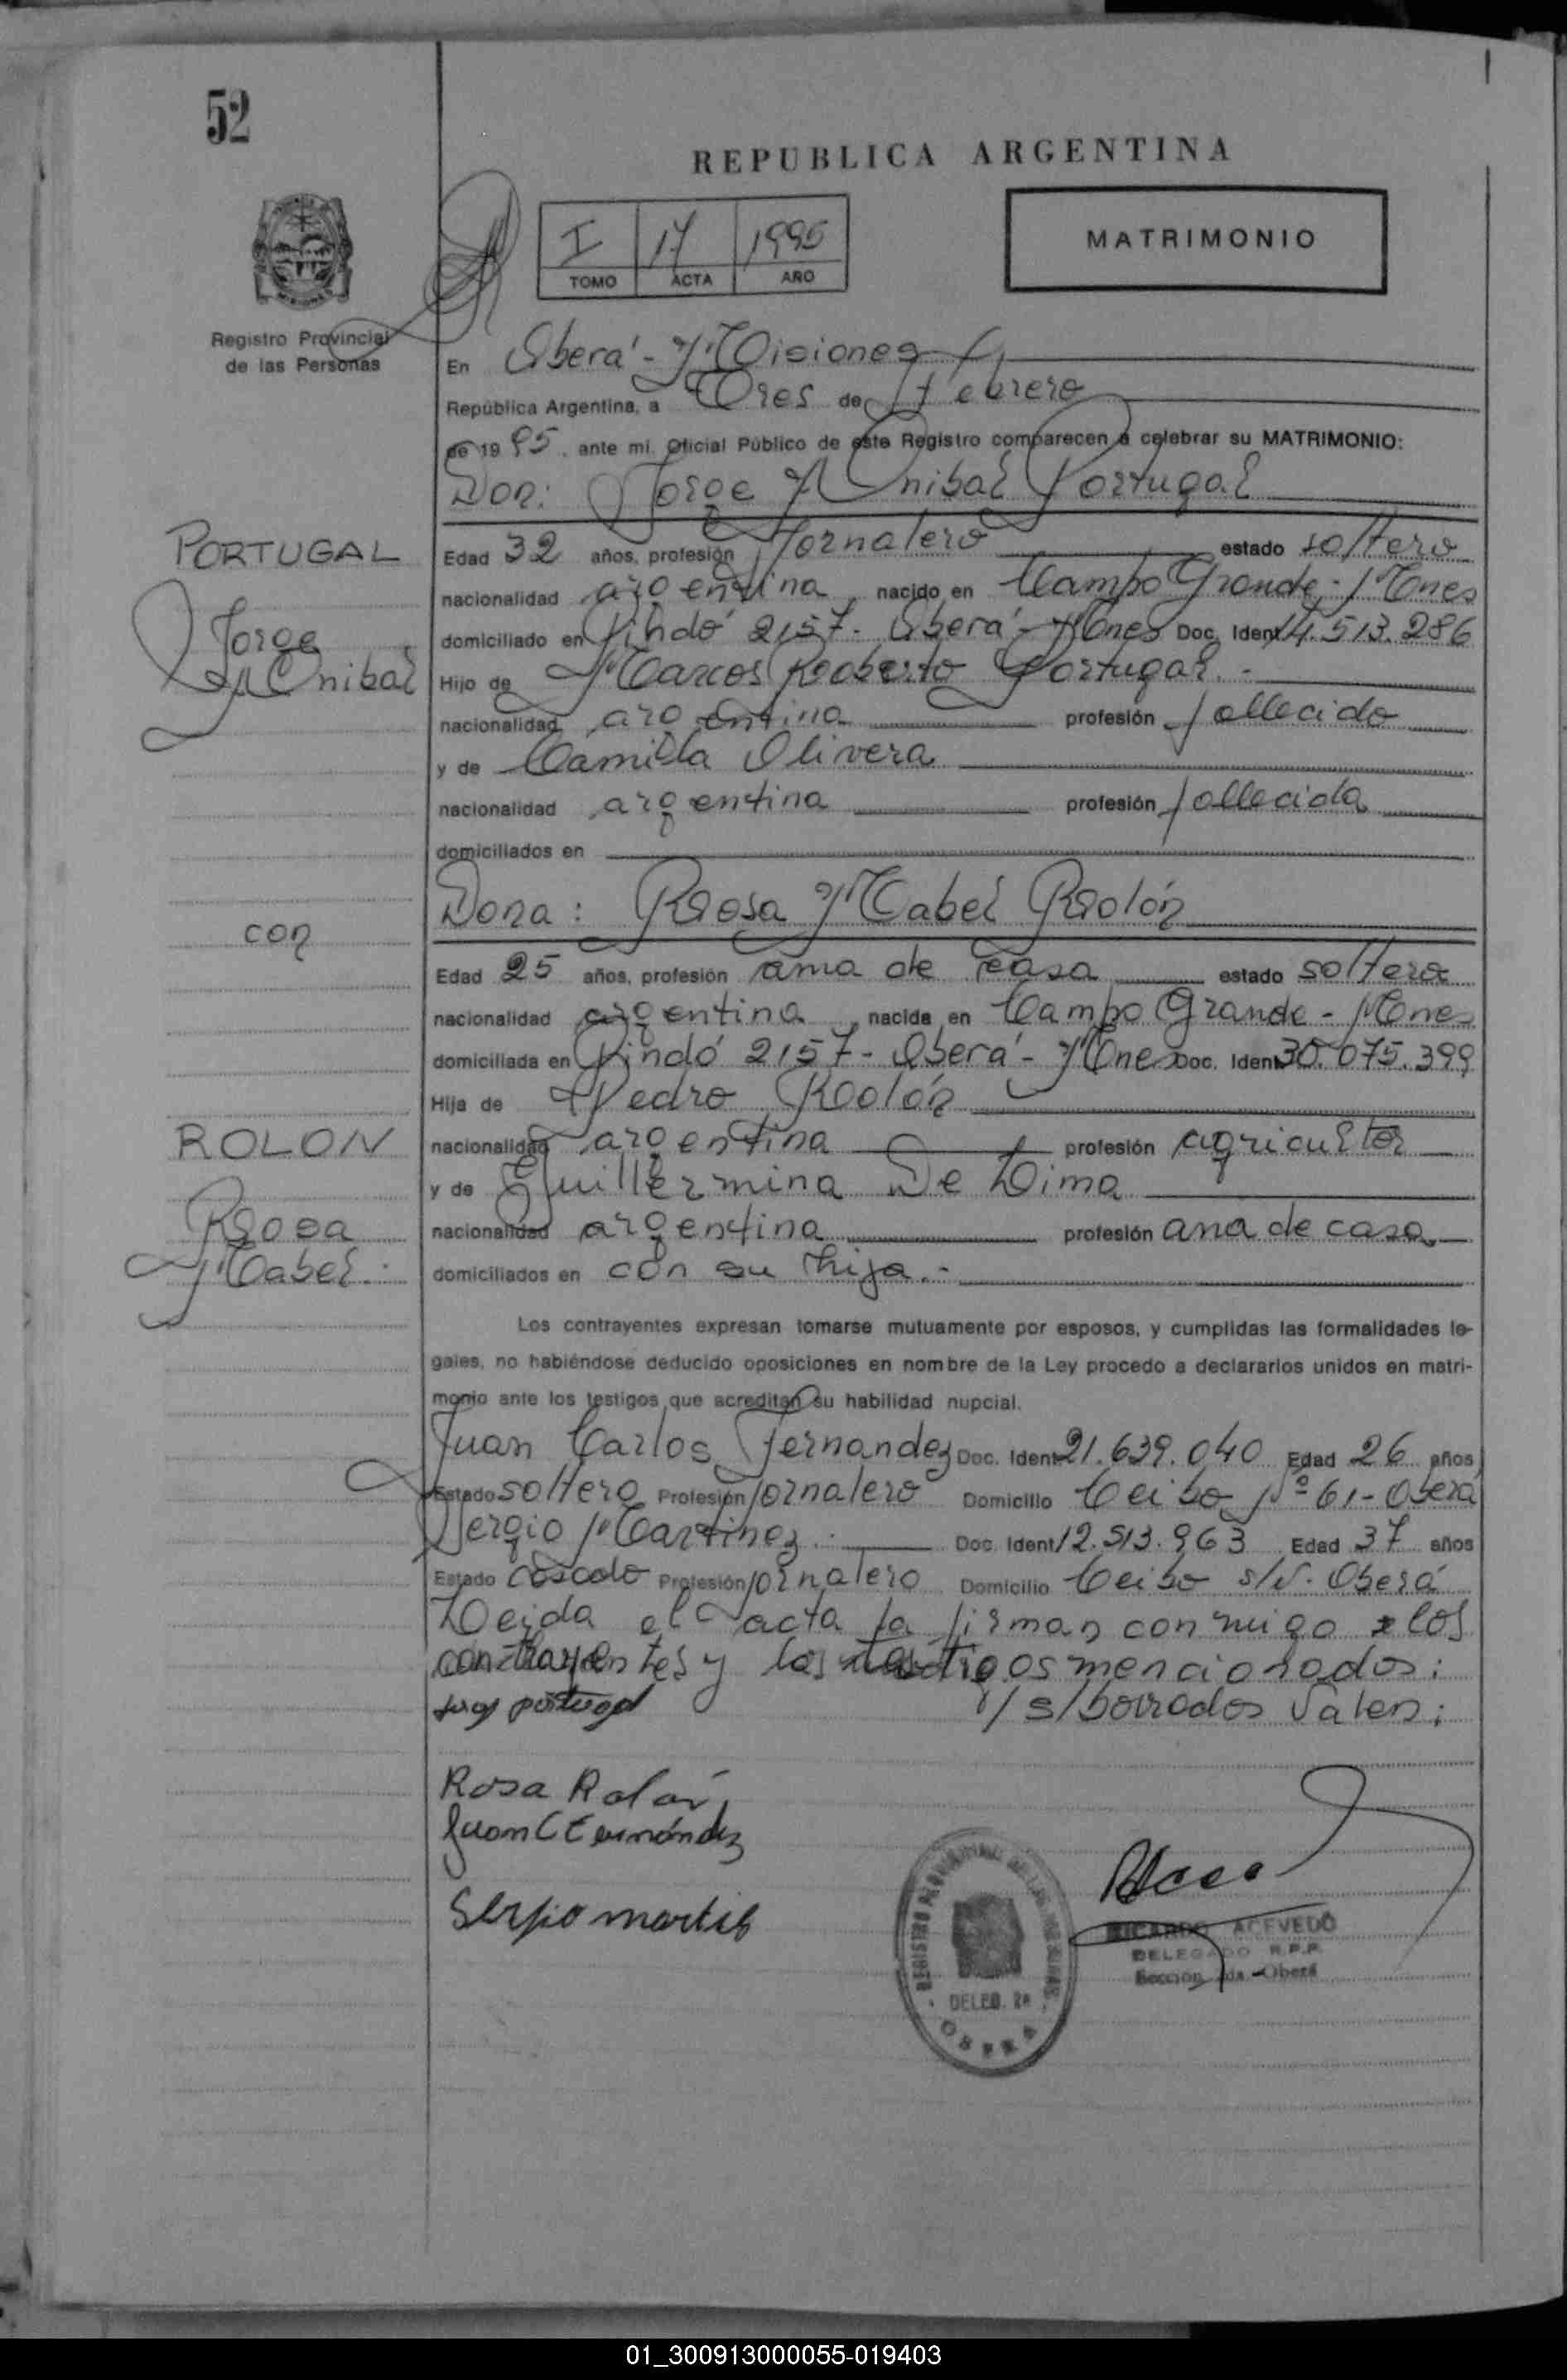 52
REPUBLICA ARGENTINA
I 17 1995
TOMO ACTA AÑO
MATRIMONIO
Registro Provincial
de las Personas
En Oberá - Misiones
República Argentina, a Tres de Febrero
de 19 95, ante mi, Oficial Público de este Registro comparecen a celebrar su MATRIMONIO:
Don: Jorge Anibal Portugal
PORTUGAL
Jorge
Anibal
Edad 32 años, profesión Jornalero estado soltero
nacionalidad argentina, nacido en Campo Grande - Mnes
domiciliado en Pindó 2157 - Oberá - Mnes Doc. Ident 14.513.286
Hijo de Marcos Roberto Portugal.-
nacionalidad argentina profesión fallecido
y de Camila Olivera
nacionalidad argentina profesión fallecida
domiciliados en
Dona: Rosa Mabel Rolón
con
Edad 25 años, profesión ama de casa estado soltera
nacionalidad argentina, nacida en Campo Grande - Mnes
domiciliada en Pindó 2157 - Oberá - Mnes Doc. Ident 30.075.399
Hija de Pedro Rolón
ROLON
Rosa
Mabel.-
nacionalidad argentina profesión agricultor
y de Guillermina De Lima
nacionalidad argentina profesión ana de casa
domiciliados en con su hija.-
Los contrayentes expresan tomarse mutuamente por esposos, y cumplidas las formalidades le-
gales, no habiéndose deducido oposiciones en nombre de la Ley procedo a declararlos unidos en matri-
monio ante los testigos que acreditan su habilidad nupcial.
Juan Carlos Fernandez Doc. Ident 21.639.040 Edad 26 años
Estado soltero Profesión Jornalero Domicilio Ceibo Nº 61 - Oberá
Sergio Martinez.- Doc. Ident 12.513.963 Edad 37 años
Estado casado Profesión Jornalero Domicilio Ceibo s/N. Oberá
Leida el acta la firman conmigo los
contrayentes y los testigos mencionados:
portugal
s/borrados Valen:
Rosa Rolón
Juan C Fernández
Sergio
DELEG. 2a
OBERA
RICARDO ACEVEDO
DELEGADO R.P.P.
Sección 2da - Oberá
01_300913000055-019403